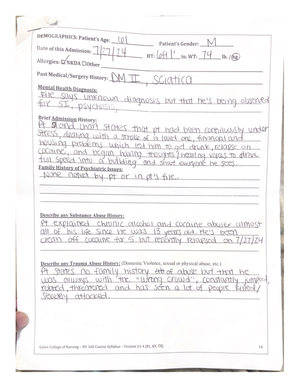 DEMOGRAPHICS: Patient's Age: 61 Patient's Gender: M
Date of this Admission: 7/27/24 HT: WT: 74 lb. / kg
Allergies: NKDA Other
Past Medical/Surgery History: DM II, sciatica
Mental Health Diagnosis:
File says unknown diagnosis but that he's being observed
for SI, psychosis,
Brief Admission History:
Pt and chart states that pt had been continuously under
stress, dealing with a stroke of a loved one, financial and
housing problems which led him to get drunk, relapse on
cocaine, and begun having thoughts / hearing voices to drive
full speed into a building and shoot everyone he sees.
Family History of Psychiatric Issues:
None noted by pt or in pt's file.
Describe any Substance Abuse History:
Pt explained chronic alcohol and cocaine abuse almost
all of his life since he was 13 years old. He's been
clean off cocaine for 5 but recently relapsed on 7/27/24
Describe any Trauma Abuse History: (Domestic Violence, sexual or physical abuse, etc.)
Pt states no family history of abuse but that he
was always with the "wrong crowd", constantly jumped,
robbed, threatened and has seen a lot of people killed/
severely attacked.
14